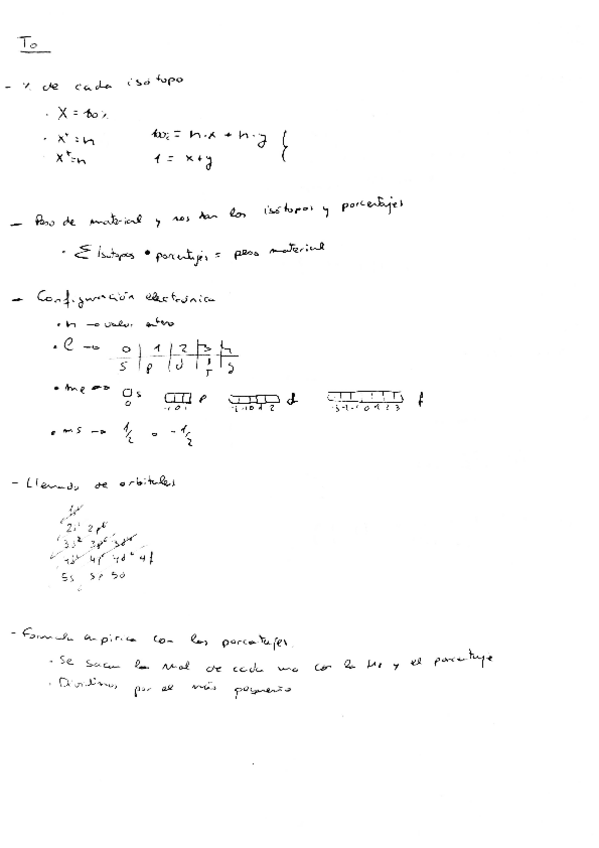 T0
- % de cada isótopo
· X = 100%
· X' = n    100 = n·x + n·y
· X'' = n    1 = x + y
- Peso de material y nos dan los isótopos y porcentajes
· Σ isótopos • porcentajes = peso material
- Configuración electrónica
· n → valor entero
· l → 0 1 2 3 4
s p d f g
· me → s p d f
0 -1 0 1 -2 -1 0 1 2 -3 -2 -1 0 1 2 3
· ms → 1/2 o -1/2
- Llenado de orbitales
2s² 2p⁶
3s² 3p⁶ 3d
4p 4d 4f
5s 5p 5d
- Formula empirica con los porcentajes
· Se sacan los mol de cada uno con la Mr y el porcentaje
· Dividimos por el más pequeño